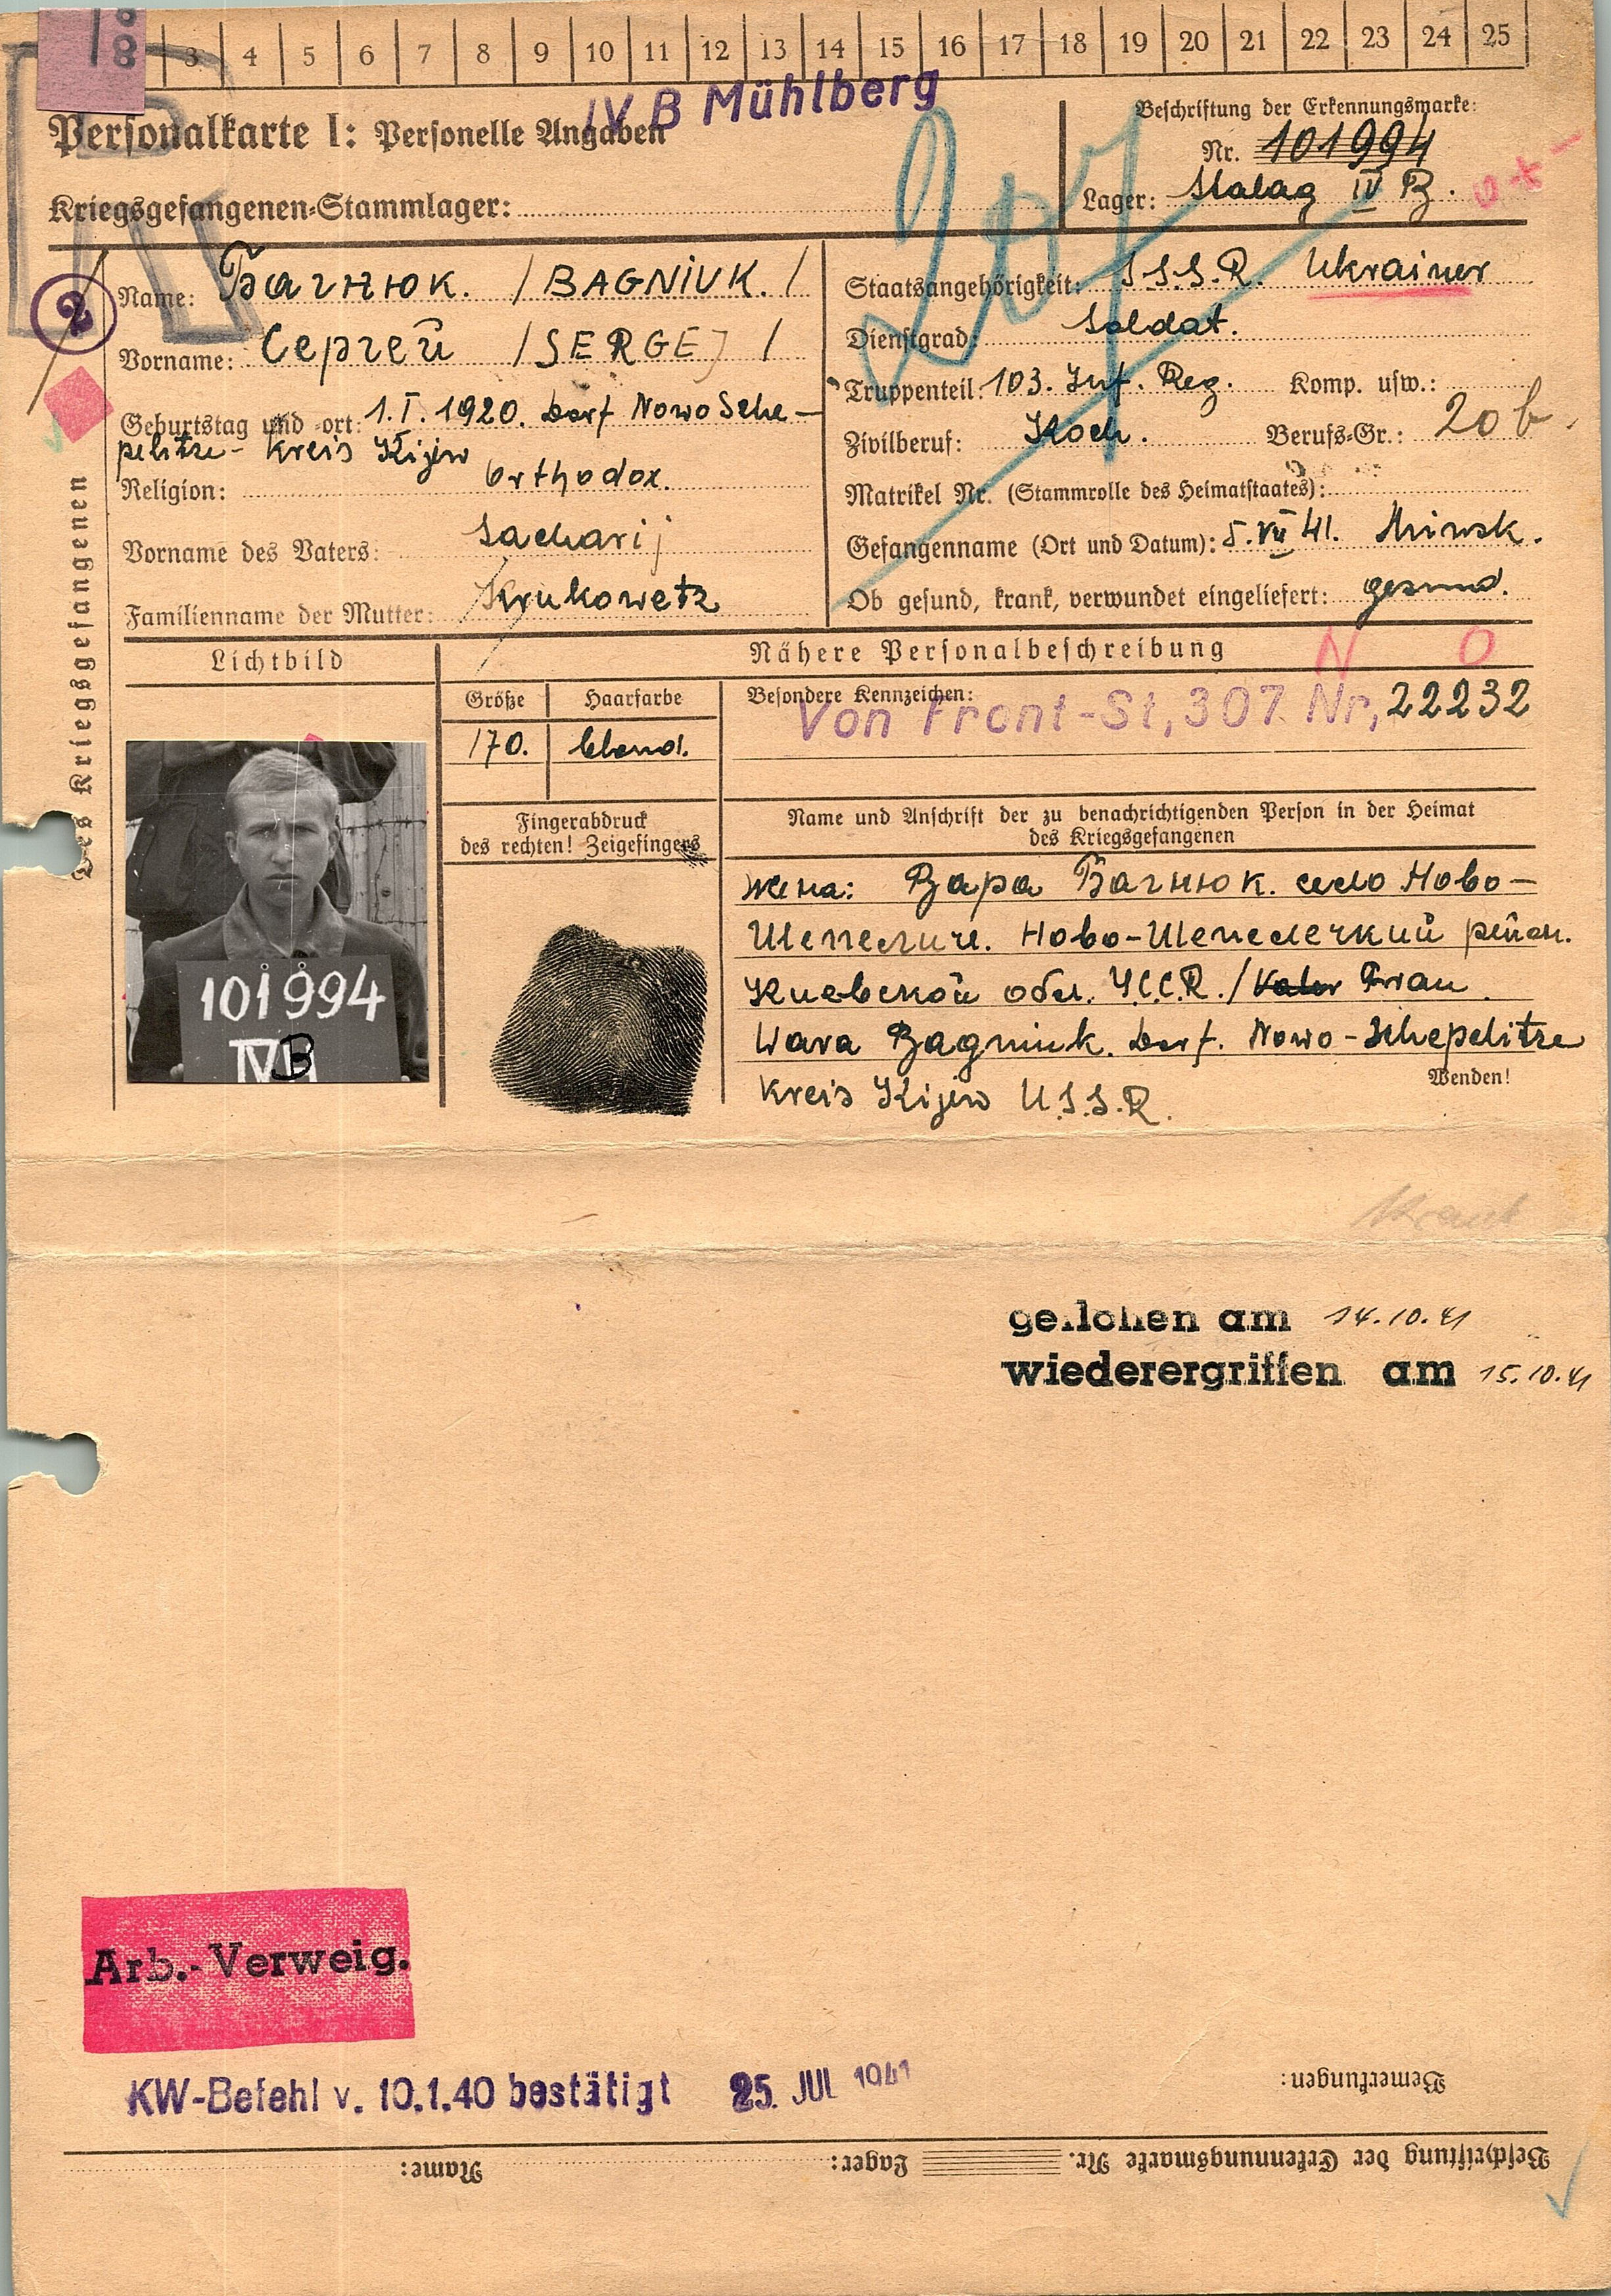 8 3 4 5 6 7 8 9 10 11 12 13 14 15 16 17 18 19 20 21 22 23 24 25
IV B Mühlberg
Personalkarte I: Personelle Angaben
Kriegsgefangenen-Stammlager:
Beschriftung der Erkennungsmarke:
Nr. 101994
Lager: Stalag IV B.
207
2
des Kriegsgefangenen
Name: Багнюк. /BAGNIUK./
Vorname: Сергей /SERGEJ/
Geburtstag und -ort: 1.I.1920. Dorf Nowo Sche-
pelitze - Kreis Kijew
Religion: Orthodox.
Vorname des Vaters: Sacharij
Familienname der Mutter: Krukowetz
Staatsangehörigkeit: S.S.S.R. Ukrainer
Dienstgrad: Soldat.
Truppenteil: 103. Inf. Reg. Komp. usw.:
Zivilberuf: Koch. Berufs-Gr.: 20 b
Matrikel Nr. (Stammrolle des Heimatstaates):
Gefangenname (Ort und Datum): 5. VII 41. Minsk.
Ob gesund, krank, verwundet eingeliefert: gesund.
N O
Lichtbild
Nähere Personalbeschreibung
Größe Haarfarbe
170. blond.
Besondere Kennzeichen:
Von Front-St, 307. Nr, 22232
Fingerabdruck
des rechten! Zeigefingers
Name und Anschrift der zu benachrichtigenden Person in der Heimat
des Kriegsgefangenen
жена: Вара Багнюк. село Ново-
Шепеличи. Ново-Шепелечкий район.
Киевской обл. У.С.С.R. /Vater Frau
Wara Bagniuk. Dorf. Nowo-Schepelitze
Kreis Kijew U.S.S.R.
Wenden!
101994
IVB
geflohen am 14.10.41
wiederergriffen am 15.10.41
Arb.-Verweig.
KW-Befehl v. 10.1.40 bestätigt 25. JUL 1941
Bemerkungen:
Beschriftung der Erkennungsmarke Nr. Lager: Name: